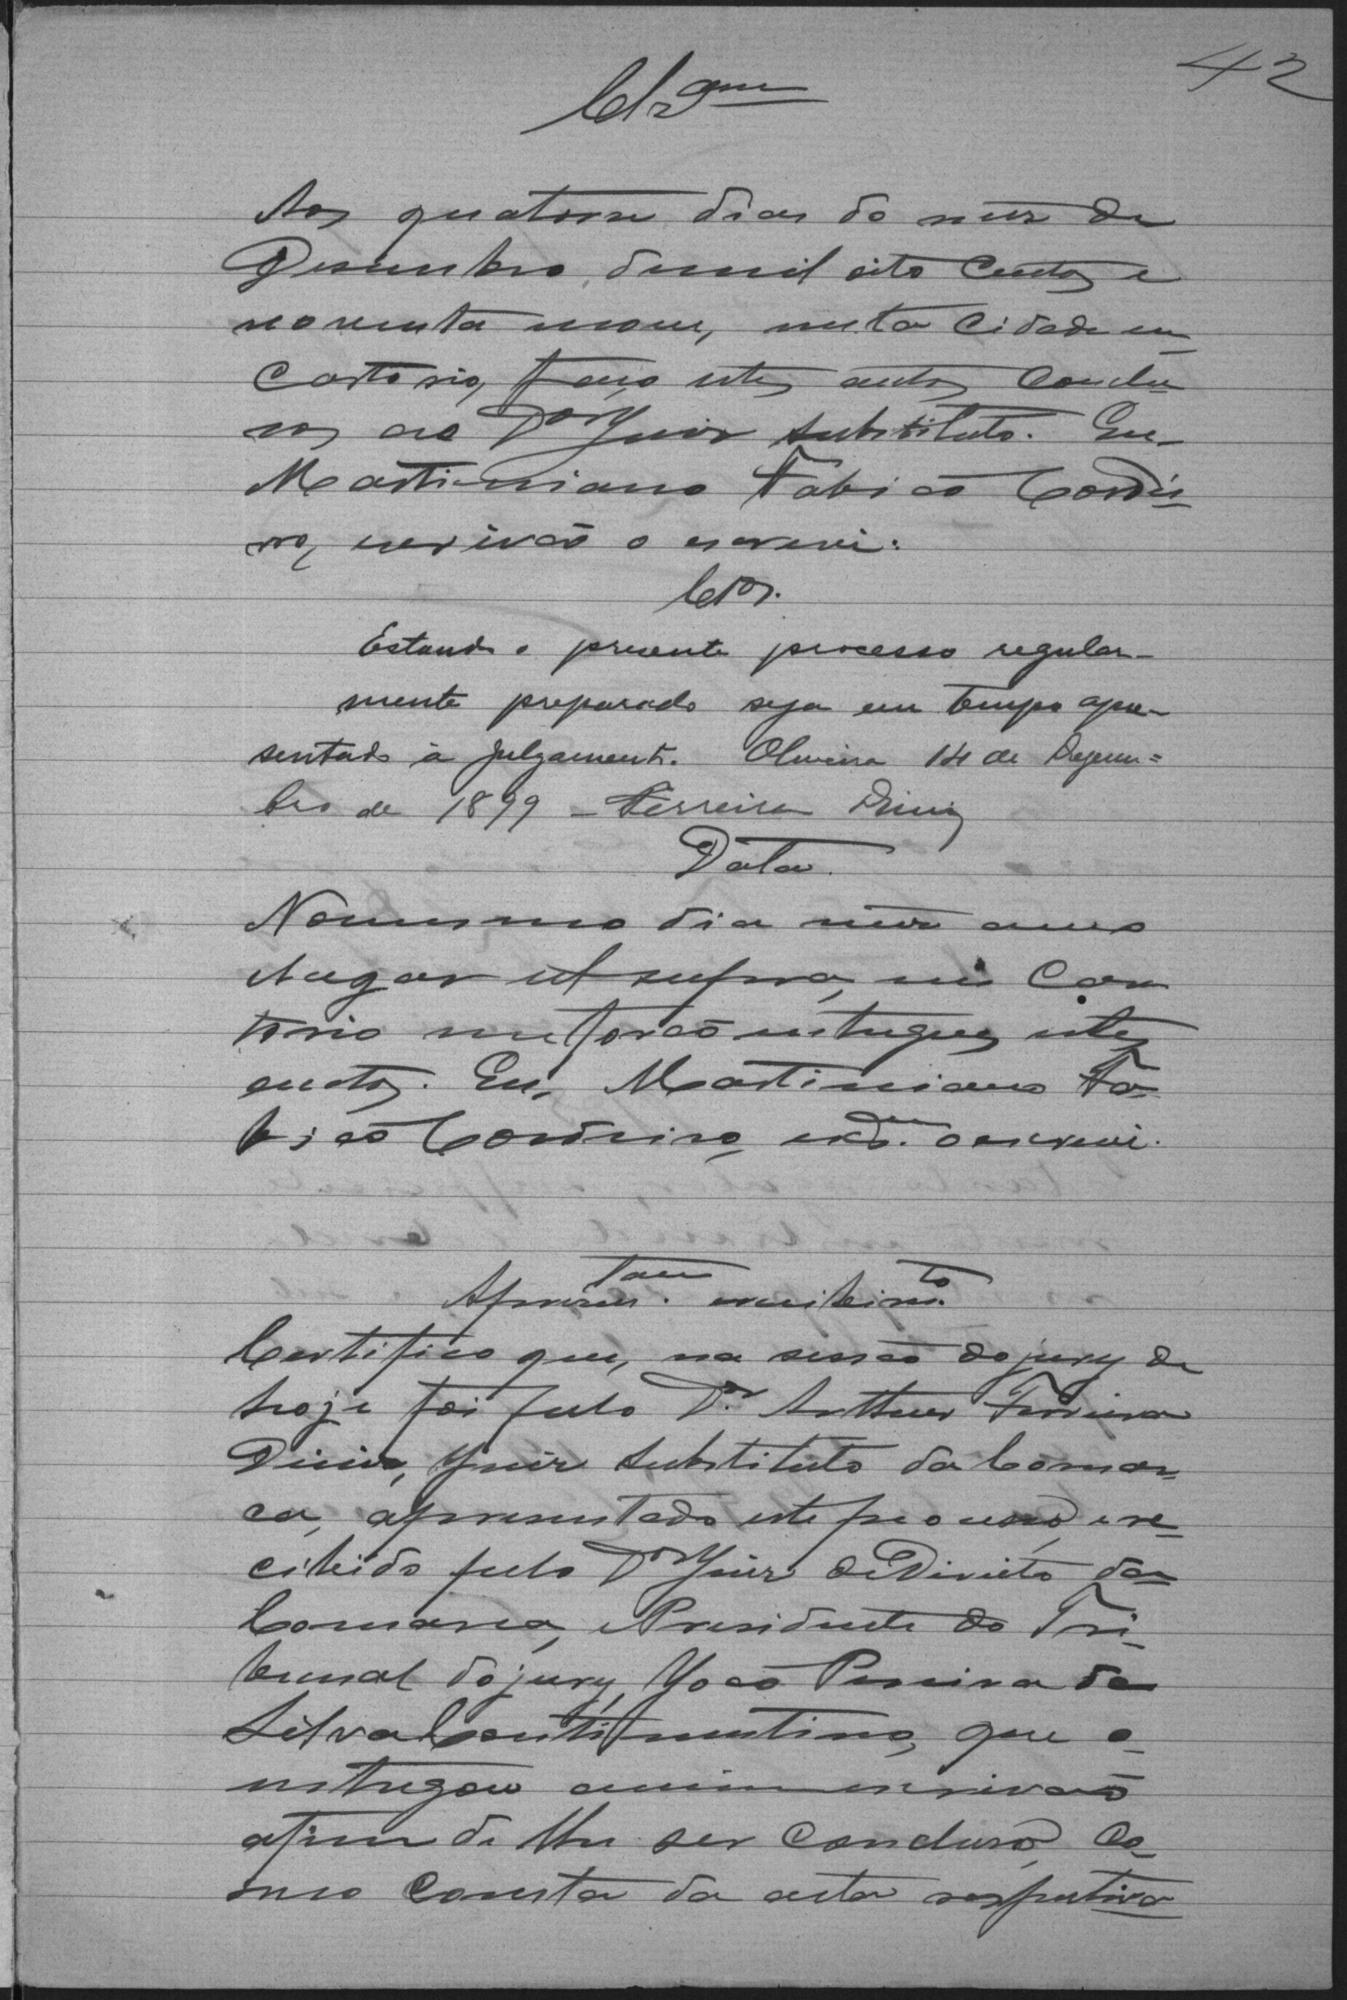 42
Cls.am
Aos quatorse dias do mez de
Desembro, demil oito centos e
noventa nove, nesta cidade em
Cartorio, faço estes autos conclu
sos ao Dor Juiz Substituto. Eu
Martiniano Fabião Cordei
ro, escrivão o escrevi.
Clos.
Estando o presente processo regular-
mente preparado seja em tempo apre-
sentado à julgamento. Oliveira 14 de Dezem=
bro de 1899 - Ferreira Diniz
Data.
Nomesmo dia mez anno
lugar ut supra, em Car
torio me forão entregues estes
autos. Eu, Martiniano Fa
bião Cordeiro, escram. o escrevi.
Apresen.tam recebim.to
Certifico que, na sessão do jury de
hoje foi pelo Dr. Arthur Ferreira
Diniz, Juiz Substituto da Comar-
ca, apresentado este processo, e re-
cebido pelo Dor Juiz de Direito da
Comarca, e Presidente do Tri-
bunal do jury, João Pereira da
Silva Continentino, que o
entregou a mim escrivão
afim de lhe ser concluso, co-
mo consta da acta respectiva